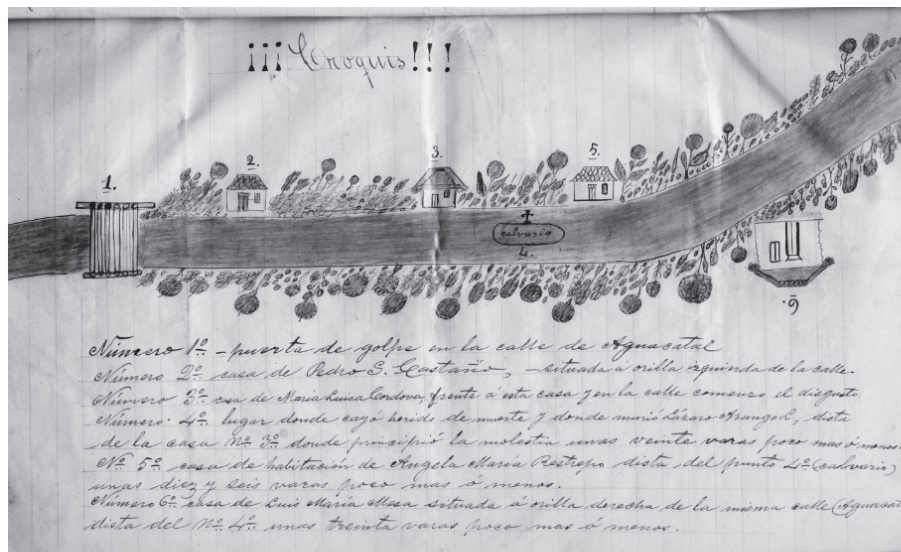 ¡¡¡Croquis!!!
1.
2.
3.
5.
calvario
4.
6.
Número 1º - puerta de golpe en la calle de Aguacatal
Número 2º casa de Pedro G. Castaño, - situada á orilla izquierda de la calle.
Número 3º casa de María Luisa Cordova, frente á esta casa y en la calle comenzo el disgusto
Número 4º lugar donde cayó herido de muerte y donde murió Lázaro Arango L, dista
de la casa nº 3º donde principió la molestia unas veinte varas poco mas ó menos.
Nº 5º casa de habitación de Angela María Restrepo dista del punto 4º (calvario)
unas diez y seis varas poco mas ó menos.
Número 6º casa de Luis María Mesa situada á orilla derecha de la misma calle
dista del Nº 4º unas treinta varas poco mas ó menos.